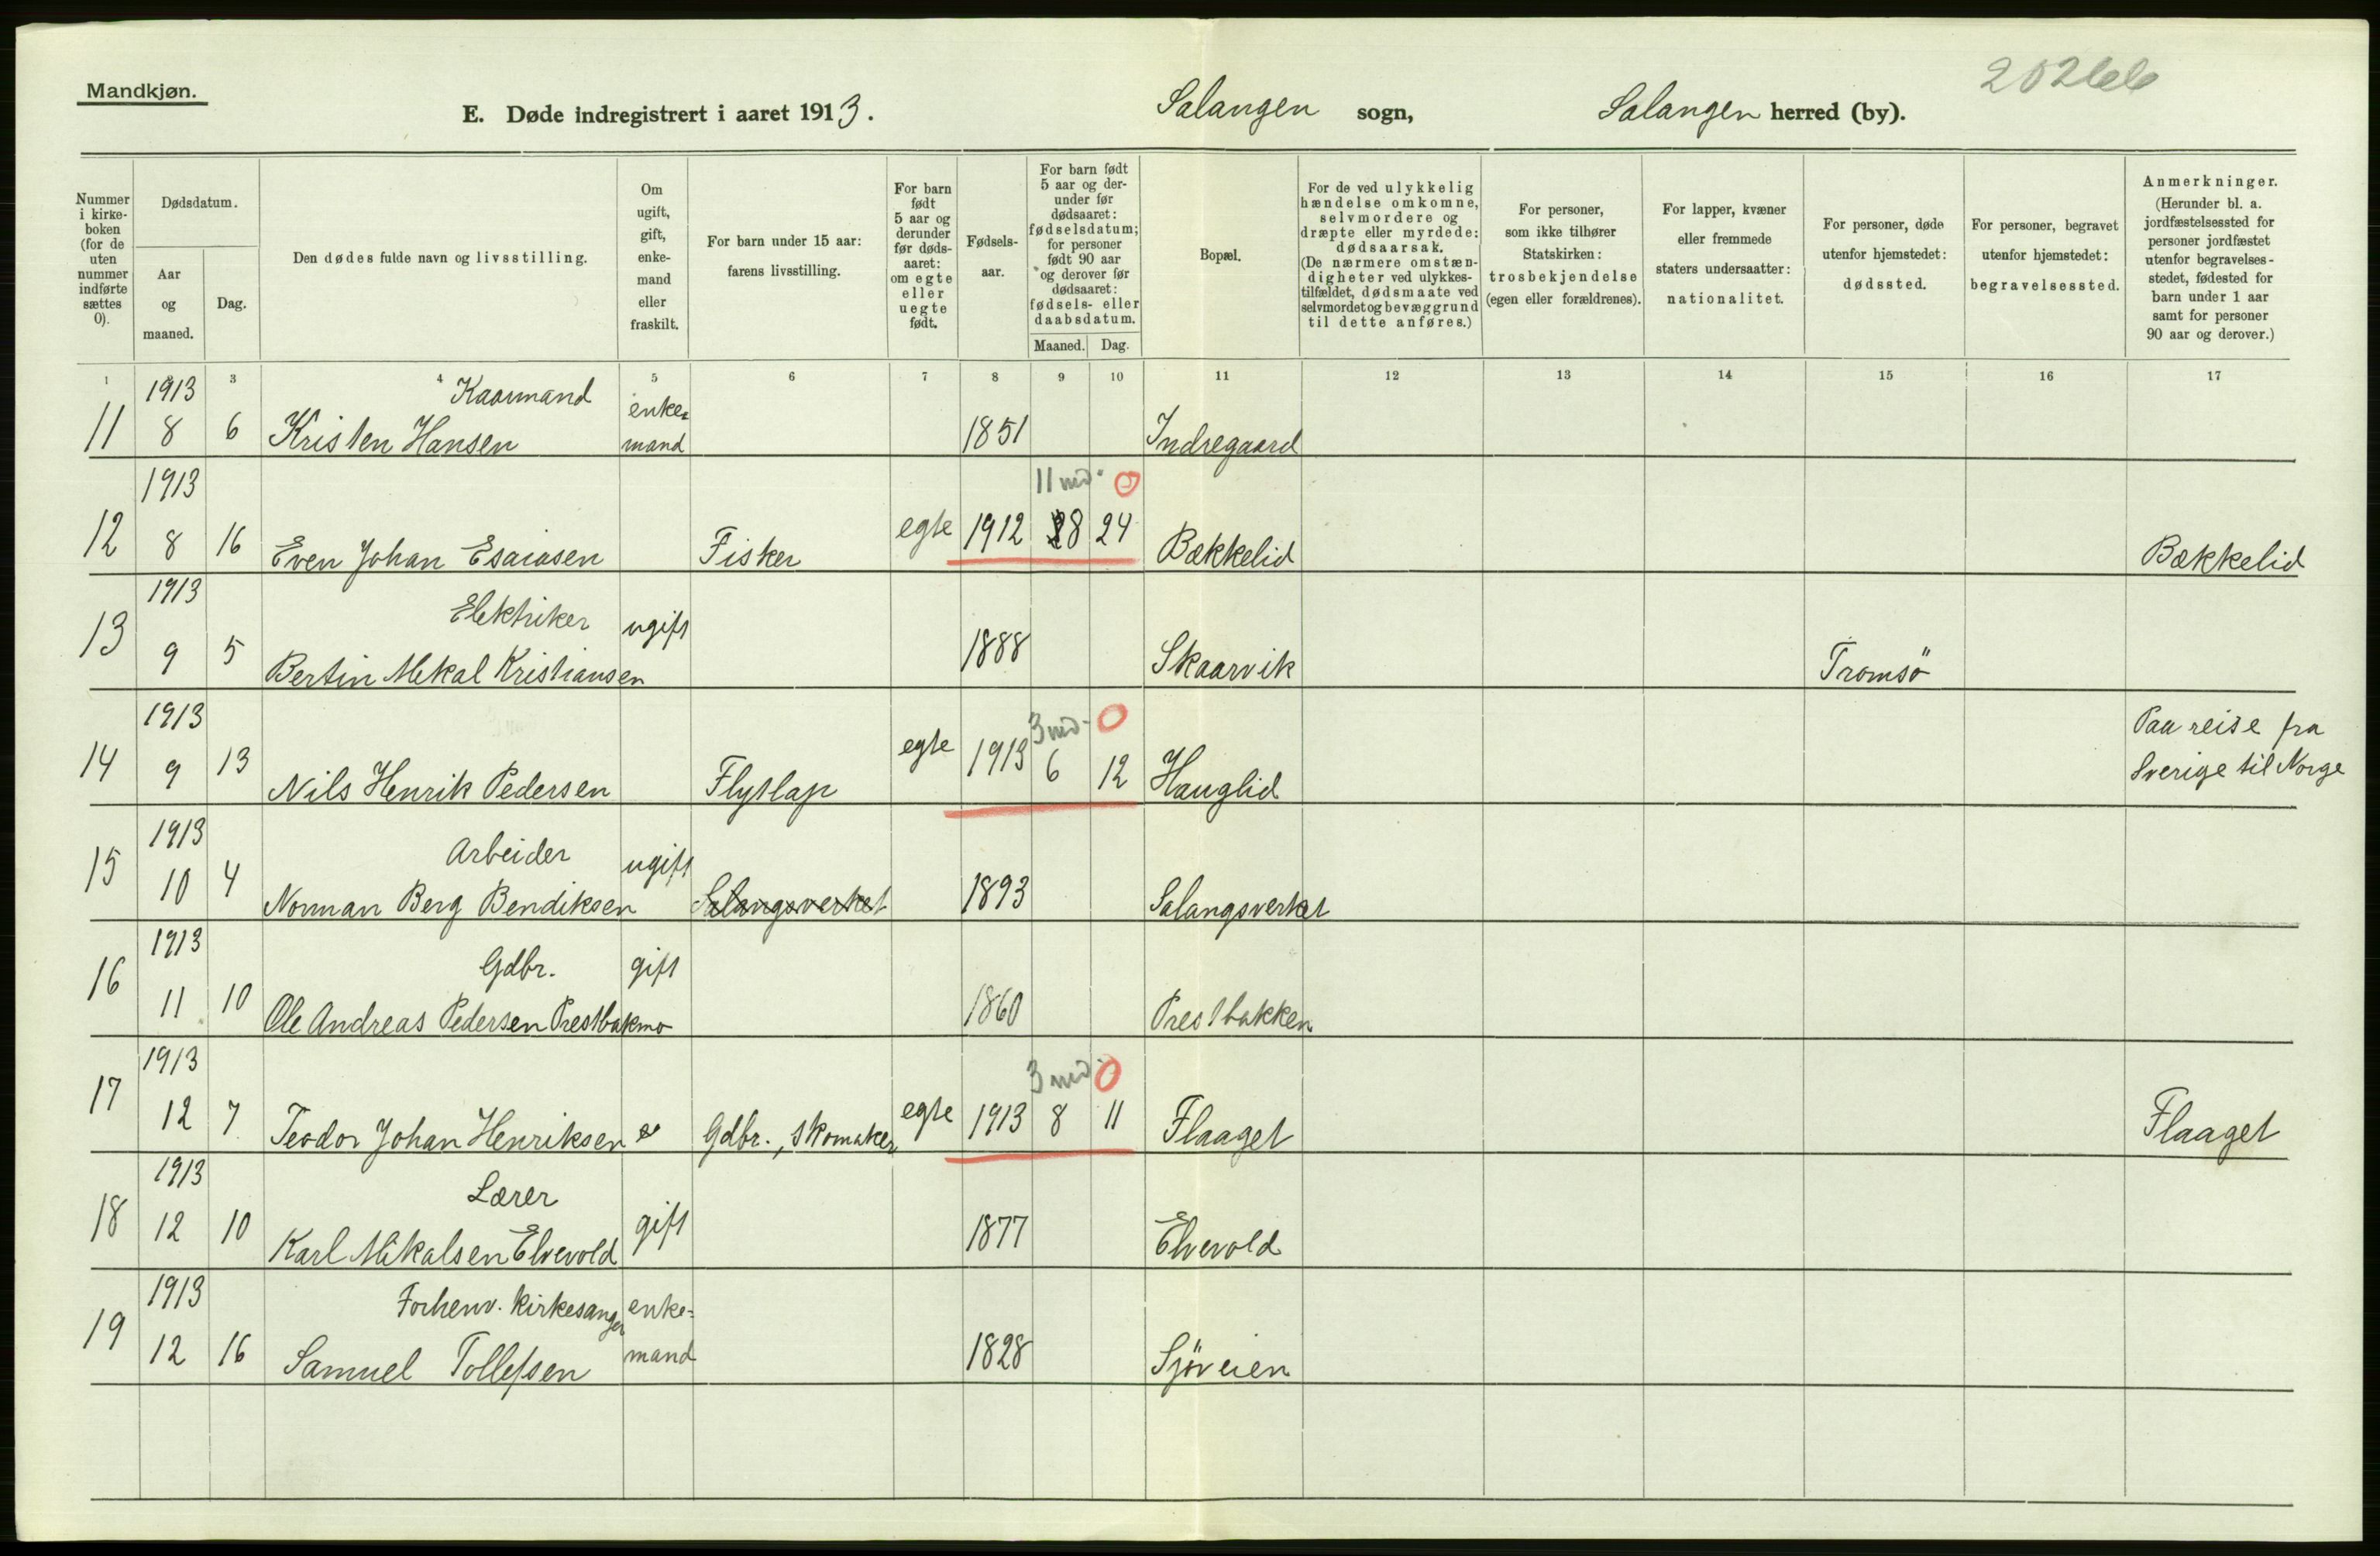 Mandkjøn.
20266
E. Døde indregistrert i aaret 1913. Salangen sogn, Salangen herred (by).
Nummer i kirke-boken (for de uten nummer indførte sættes 0).
Dødsdatum.
Aar og maaned.
Dag.
Den dødes fulde navn og livsstilling.
Om ugift, gift, enke-mand eller fraskilt.
For barn under 15 aar: farens livsstilling.
For barn født 5 aar og derunder før døds-aaret: om egte eller uegte født.
Fødsels-aar.
For barn født 5 aar og der-under før dødsaaret: fødselsdatum; for personer født 90 aar og derover før dødsaaret: fødsels- eller daabsdatum.
Maaned. Dag.
Bopæl.
For de ved ulykkelig hændelse omkomne, selvmordere og dræpte eller myrdede: dødsaarsak. (De nærmere omstæn-digheter ved ulykkes-tilfældet, dødsmaate ved selvmordet og bevæggrund til dette anføres.)
For personer, som ikke tilhører Statskirken: trosbekjendelse (egen eller forældrenes).
For lapper, kvæner eller fremmede staters undersaatter: nationalitet.
For personer, døde utenfor hjemstedet: dødssted.
For personer, begravet utenfor hjemstedet: begravelsessted.
Anmerkninger. (Herunder bl. a. jordfæstelsessted for personer jordfæstet utenfor begravelses-stedet, fødested for barn under 1 aar samt for personer 90 aar og derover.)
1 3 4 5 6 7 8 9 10 11 12 13 14 15 16 17
1913 Kaarmand enke=
11 8 6 Kristen Hansen mand 1851 Indregaard
1913 11 md. 0
12 8 16 Even Johan Esaiasen Fisker egte 1912 8 24 Bækkelid Bækkelid
1913 Elektriker ugift
13 9 5 Bertin Mekal Kristiansen 1888 Skaarvik Tromsö
1913 3 md. 0 Paa reise fra
14 9 13 Nils Henrik Pedersen Flytlap egte 1913 6 12 Hauglid Sverige til Norge
1913 Arbeider ugift
15 10 4 Norman Berg Bendiksen Salangsverket 1893 Salangsverket
1913 Gdbr. gift
16 11 10 Ole Andreas Pedersen Prestbakmo 1860 Prestbakken
1913 3 md 0
17 12 7 Teodor Johan Henriksen Gdbr., skomaker egte 1913 8 11 Flaaget Flaaget
1913 Lærer
18 12 10 Karl Mikalsen Elvevold gift 1877 Elvevold
1913 Forhenv. kirkesanger enke=
19 12 16 Samuel Tollefsen mand 1828 Sjöveien